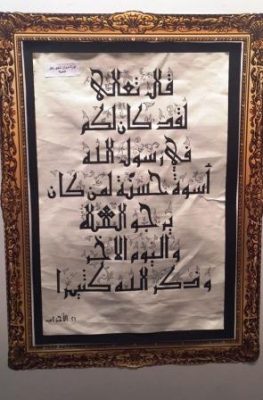 قال تعالى
لقد كان لكم
في رسول الله
أسوة حسنة لمن كان
يرجو الله
واليوم الآخر
وذكر الله كثيرا
٢١ الأحزاب